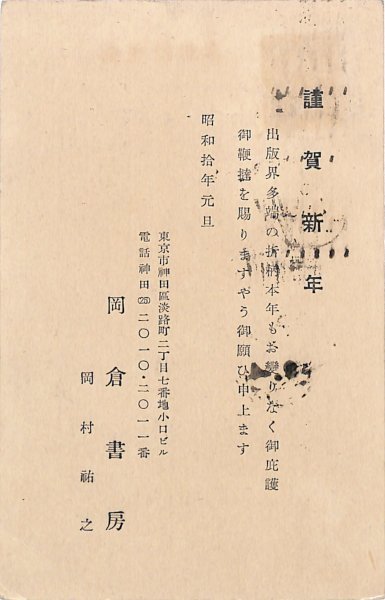 謹賀新年
出版界多端の折柄本年もお變りなく御庇護
御鞭撻を賜りますやう御願ひ申上ます
昭和拾年元旦
東京市神田區淡路町二丁目七番地小口ビル
電話神田(25)二〇一〇・二〇一一番
岡倉書房
岡村祐之